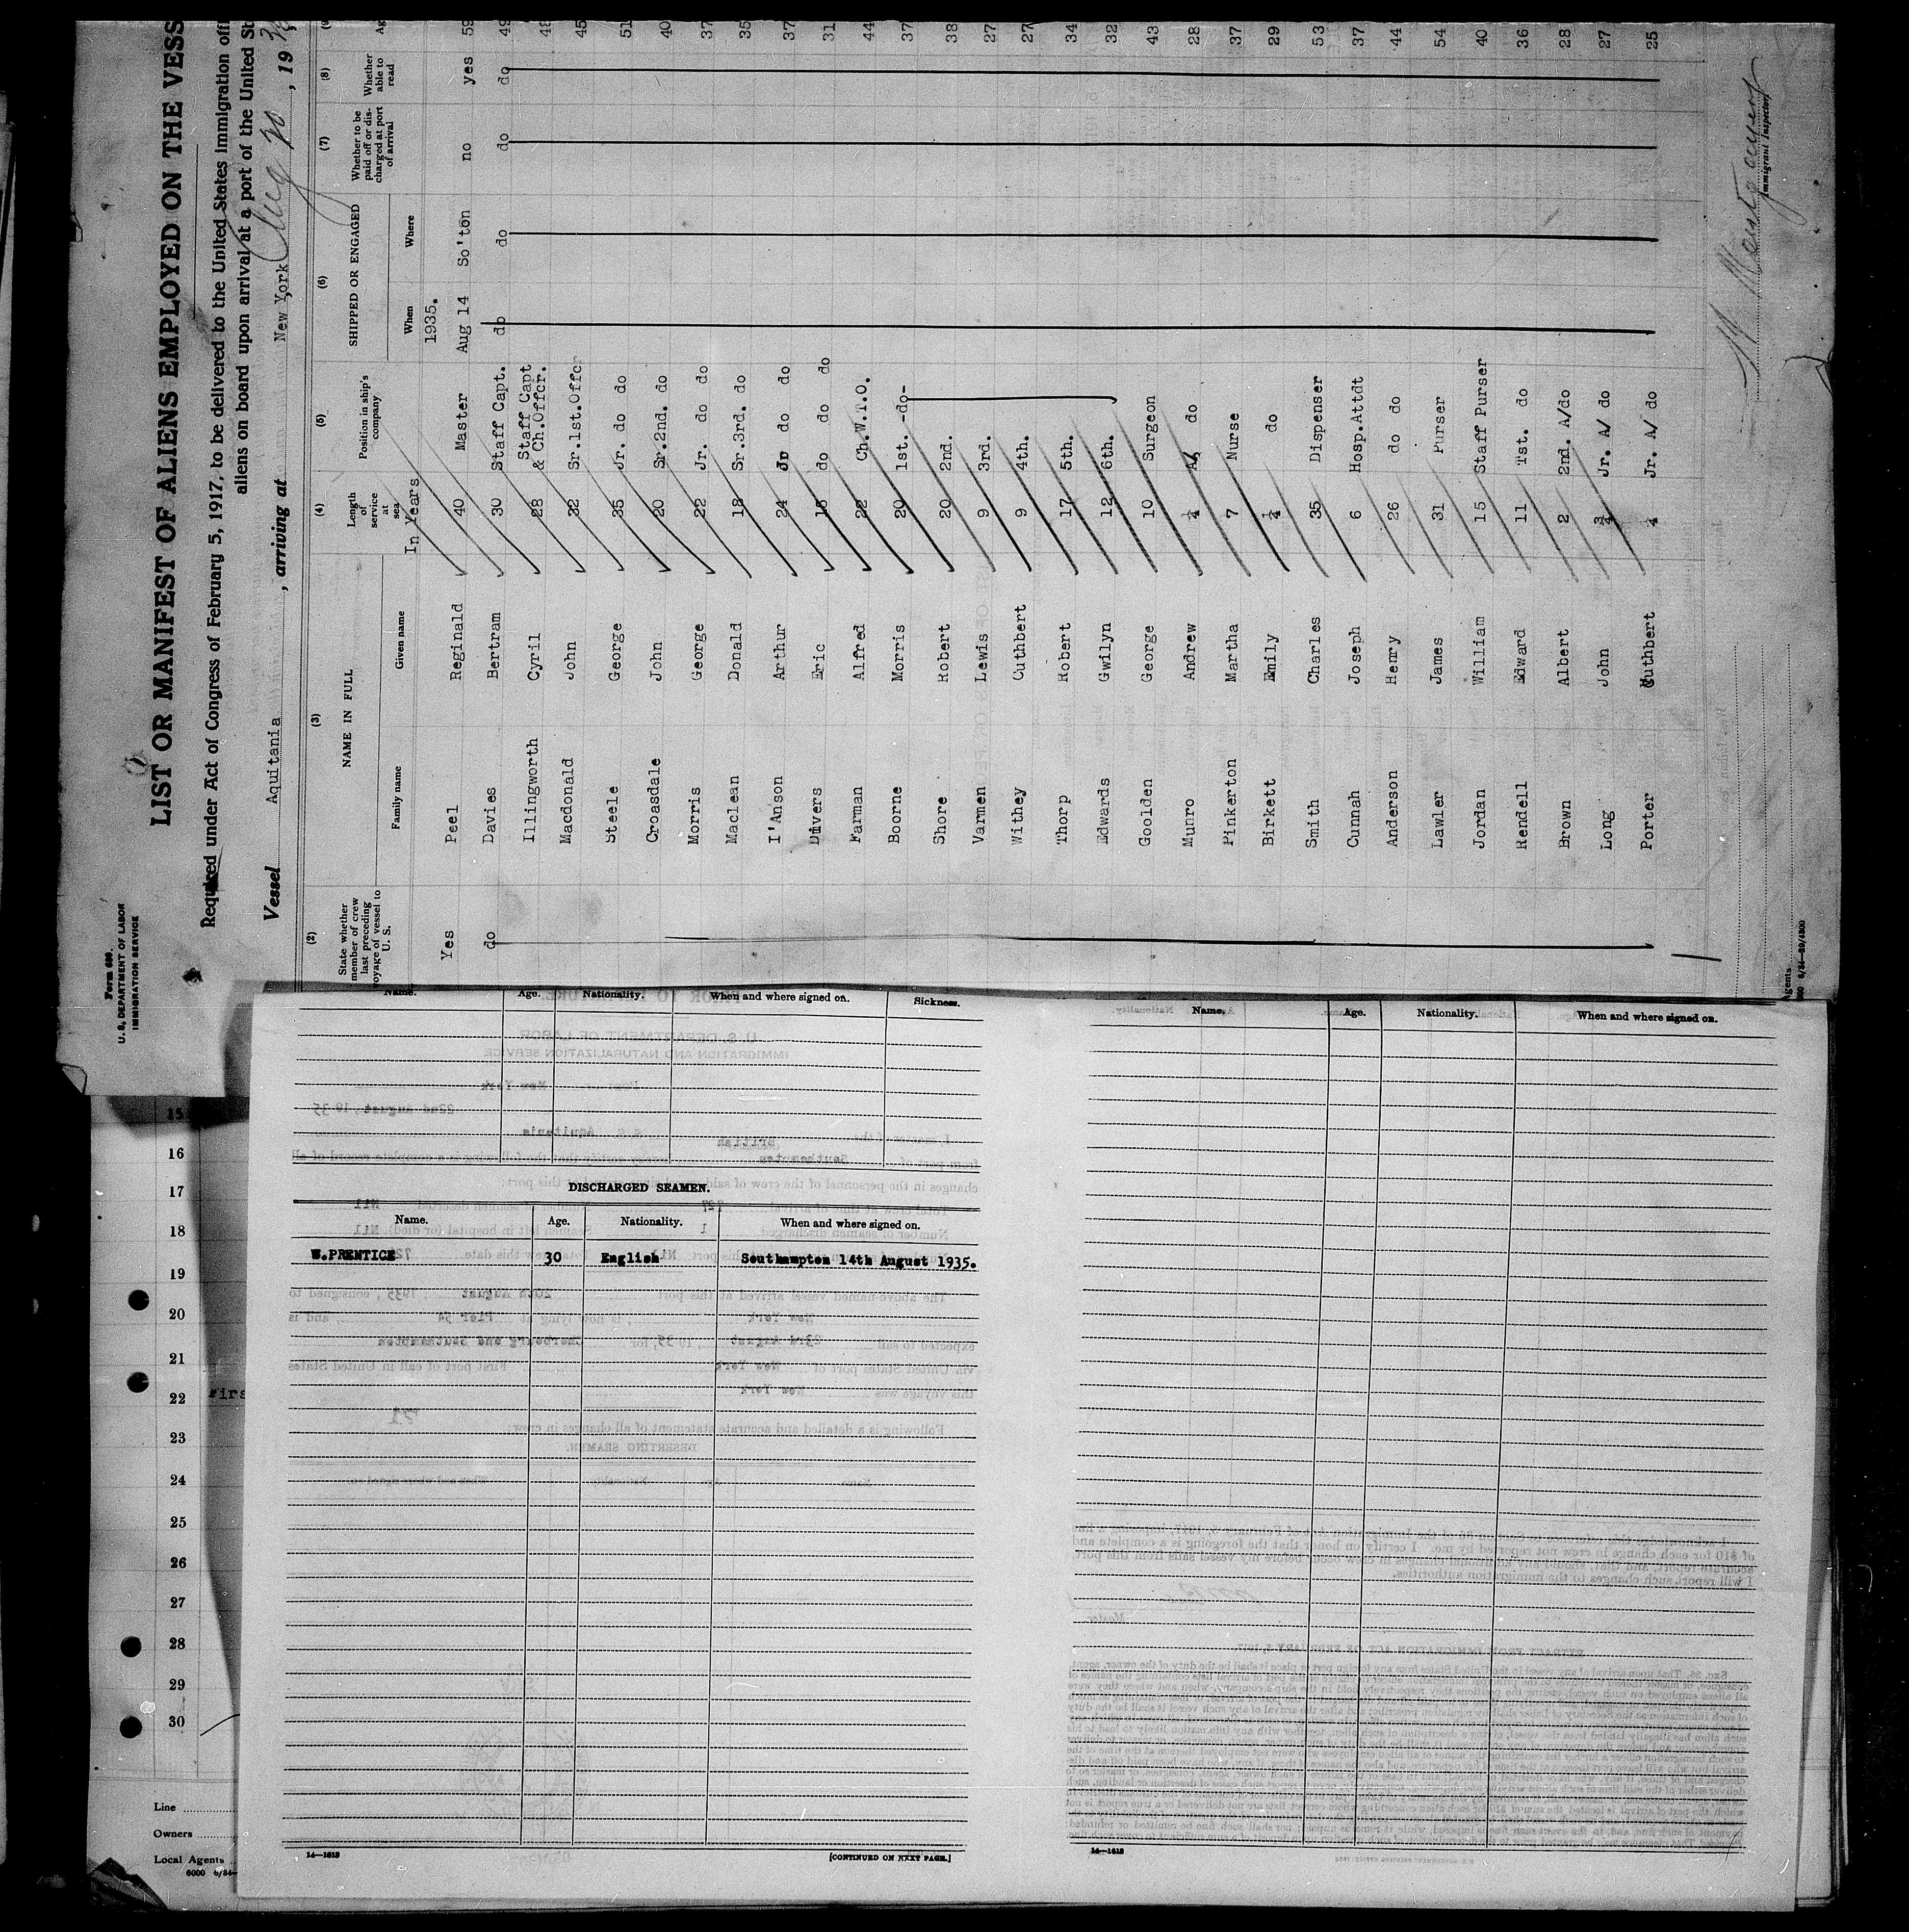 Form 680.
U. S. DEPARTMENT OF LABOR
IMMIGRATION SERVICE
LIST OR MANIFEST OF ALIENS EMPLOYED ON THE VESS
Required under Act of Congress of February 5, 1917, to be delivered to the United States immigration offi
aliens on board upon arrival at a port of the United St
Vessel Aquitania , arriving at New York Aug 20 , 19
(2) (3) (4) (5) (6) (7) (8)
State whether member of crew last preceding voyage of vessel to U. S. NAME IN FULL Family name Given name Length of service at sea Position in ship's company SHIPPED OR ENGAGED When Where Whether to be paid off or discharged at port of arrival Whether able to read Ag
In Years 1935.
Yes Peel Reginald 40 Master Aug 14 So'ton no yes 59
do Davies Bertram 30 Staff Capt. do do do do 49
Illingworth Cyril 28 Staff Capt & Ch.Offcr. 48
Macdonald John 32 Sr.1st.Offcr 45
Steele George 35 Jr. do do 51
Croasdale John 20 Sr.2nd. do 40
Morris George 22 Jr. do do 37
Maclean Donald 18 Sr.3rd. do 35
I'Anson Arthur 24 Jr do do 37
Divers Eric 15 do do do 31
Farman Alfred 22 Ch.W.T.O. 44
Boorne Morris 20 1st. -do- 37
Shore Robert 20 2nd. 38
Varmen Lewis 9 3rd. 27
Withey Cuthbert 9 4th. 27
Thorp Robert 17 5th. 34
Edwards Gwilyn 12 6th. 32
Goolden George 10 Surgeon 43
Munro Andrew A/ do 28
Pinkerton Martha 7 Nurse 37
Birkett Emily do 29
Smith Charles 35 Dispenser 53
Cunnah Joseph 6 Hosp.Attdt 37
Anderson Henry 26 do do 44
Lawler James 31 Purser 54
Jordan William 15 Staff Purser 40
Rendell Edward 11 1st. do 36
Brown Albert 2 2nd. A/do 28
Long John 3/4 Jr. A/ do 27
Porter Cuthbert Jr. A/ do 25
Immigrant Inspector
Agents
Name. Age. Nationality. When and where signed on. Sickness.
DISCHARGED SEAMEN.
Name. Age. Nationality. When and where signed on.
W.PRENTICE 30 English Southampton 14th August 1935.
14—1613
[CONTINUED ON NEXT PAGE.]
Name. Age. Nationality. When and where signed on.
14—1613
15
16
17
18
19
20
21
22
23
24
25
26
27
28
29
30
Line
Owners
Local Agents